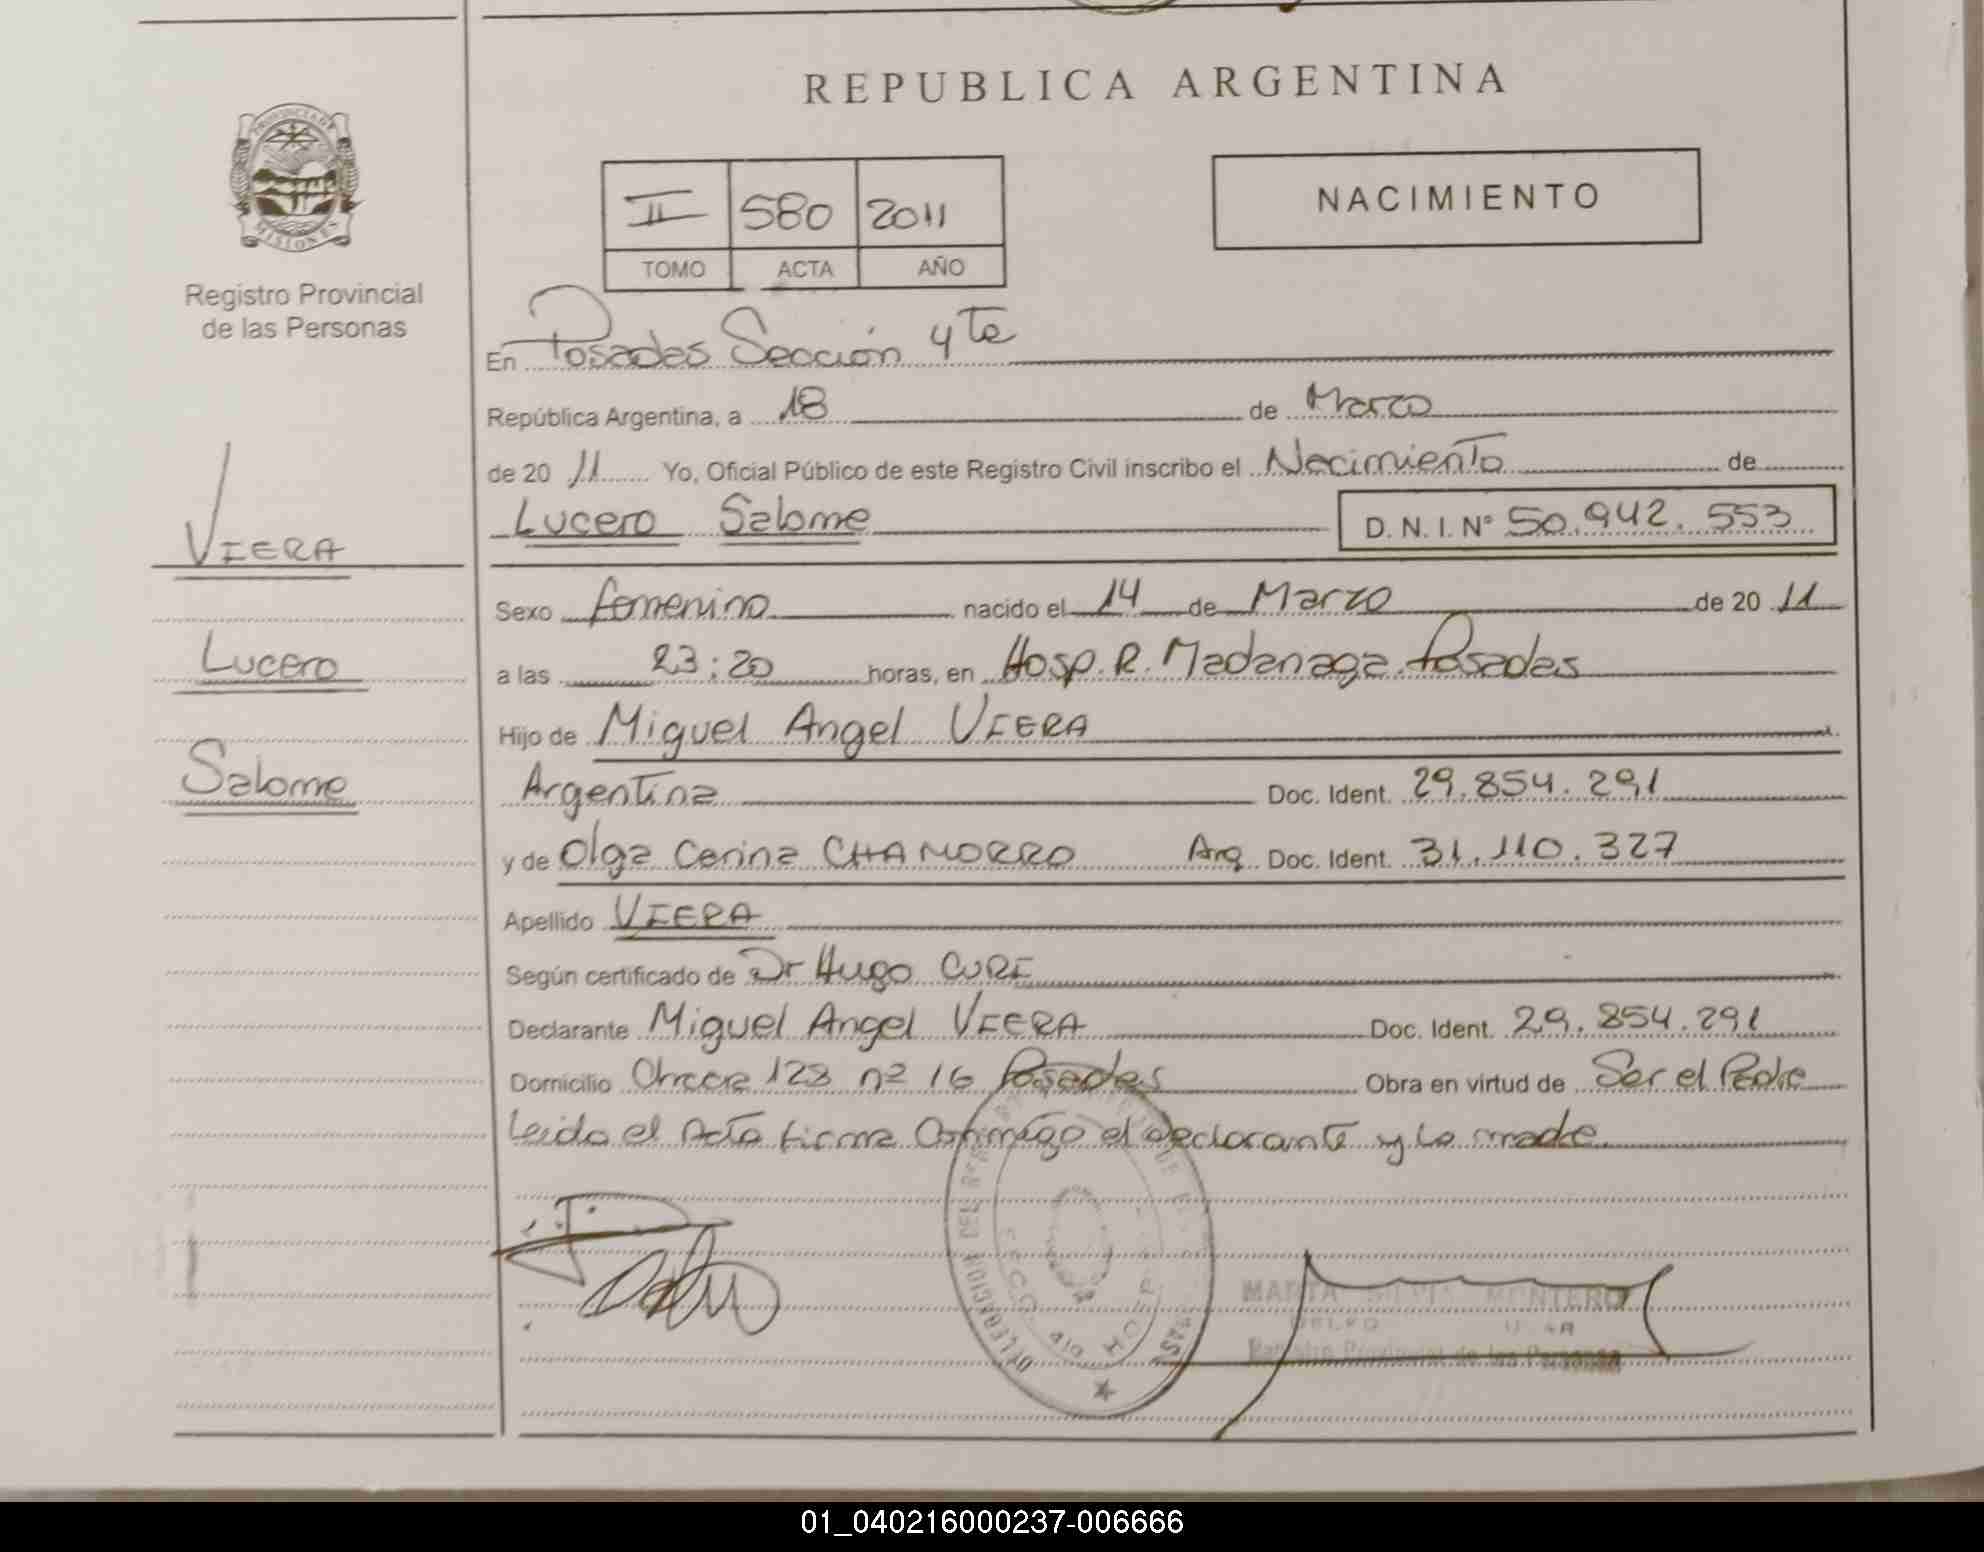 REPUBLICA ARGENTINA
PROVINCIA DE
MISIONES
Registro Provincial
de las Personas
II 580 2011
TOMO ACTA AÑO
NACIMIENTO
En Posadas Sección 4ta
República Argentina, a 18 de Marzo
de 20 11 Yo, Oficial Público de este Registro Civil inscribo el Nacimiento de
Lucero Salome D. N. I. N° 50.942.553
VIERA
Lucero
Salome
Sexo femenino nacido el 14 de Marzo de 20 11
a las 23:20 horas, en Hosp. R. Madariaga. Posadas
Hijo de Miguel Angel VIERA
Argentina Doc. Ident. 29.854.291
y de Olga Carina CHAMORRO Arg. Doc. Ident. 31.110.327
Apellido VIERA
Según certificado de Dr Hugo CURE
Declarante Miguel Angel VIERA Doc. Ident. 29.854.291
Domicilio Chacra 128 nº 16 Posadas Obra en virtud de Ser el Padre
Leida el Acta firma Conmigo el declarante y la madre
DELEGACION DEL
MARTA SILVIA MONTERO
Registro Provincial de las Personas
01_040216000237-006666